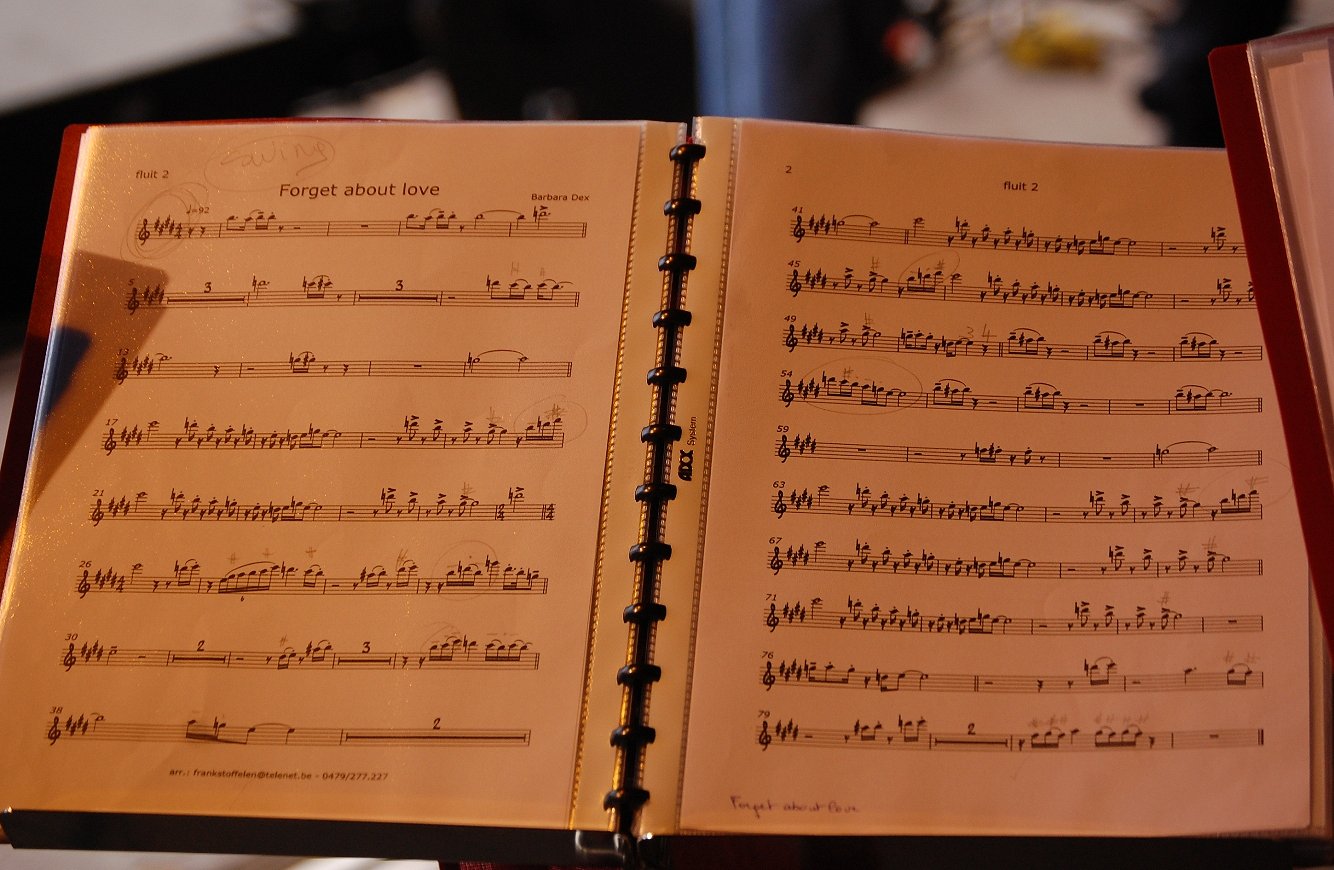 swing
fluit 2
Forget about love
Barbara Dex
♩=92
5
3
3
12
17
21
26
30
2
3
38
2
arr.: frankstoffelen@telenet.be - 0479/277.227
System
2
fluit 2
41
45
49
3 4
54
59
63
67
71
76
79
2
Forget about love